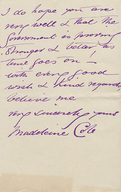 I do hope you are
very well & that the
Government is growing
stronger & better as
time goes on –
with every good
wish & kind regards
believe me
very sincerely yours
Madeleine Cole